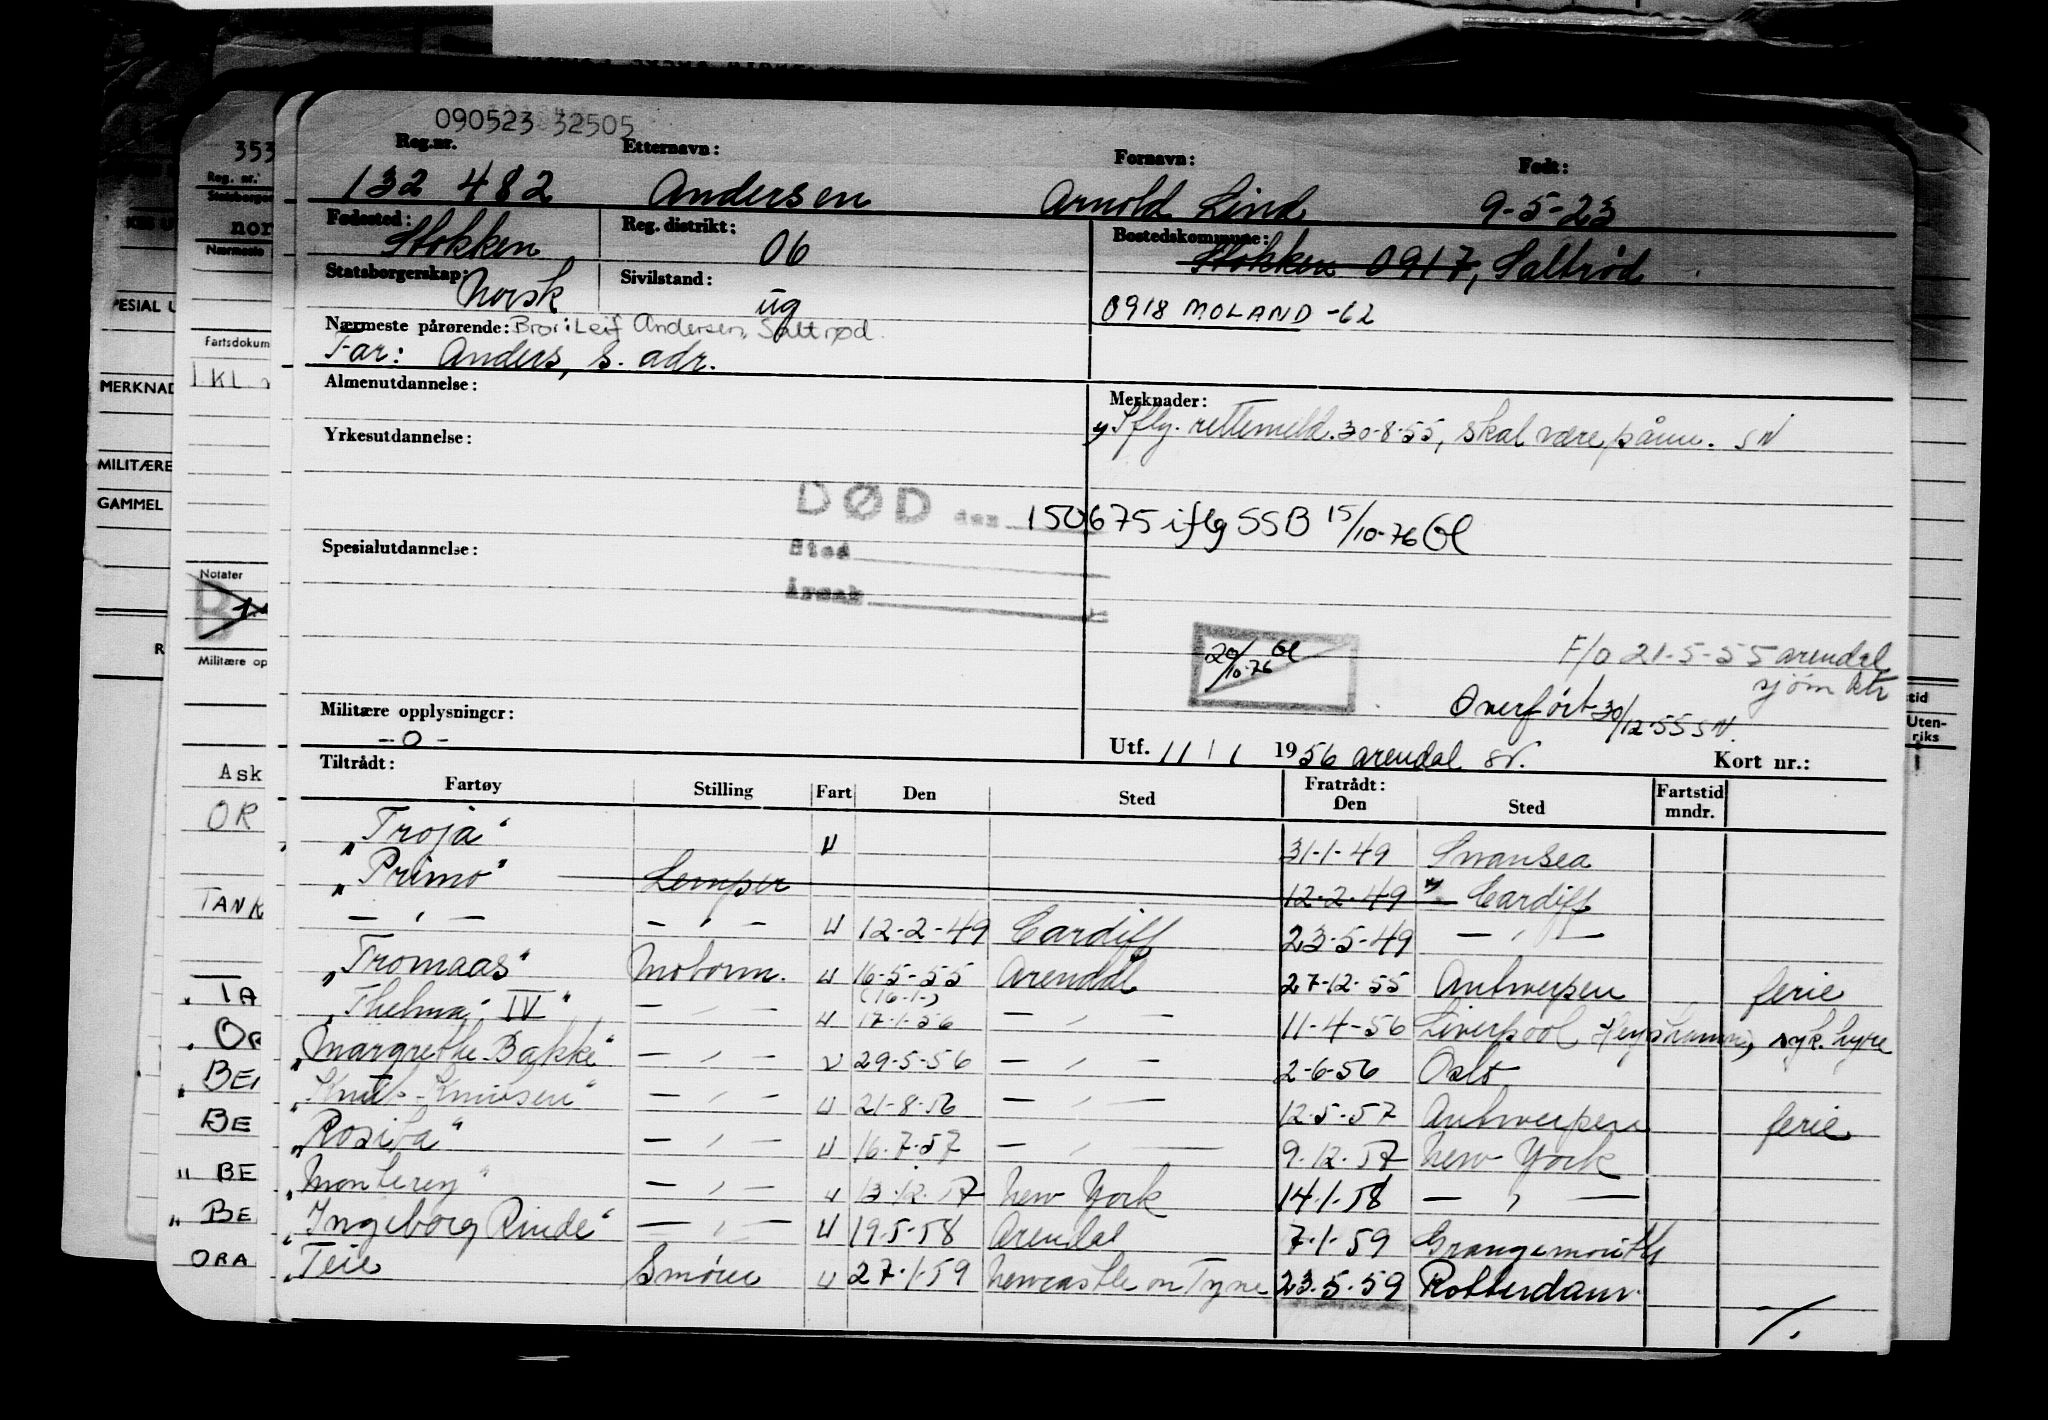 090523 32505
Reg.nr. Etternavn: Fornavn: Født:
132 482 Andersen Arnold Lind 9-5-23
Fødested: Stokken Reg. distrikt: 06 Bostedskommune: Stokken 0917, Saltrød
Statsborgerskap: Norsk Sivilstand: ug 0918 MOLAND -62
Nærmeste pårørende: Bror: Leif Andersen, Saltrød.
Far: Anders, s. adr.
Almenutdannelse: Merknader:
Iflg. rettemeld. 30-8-55, skal være SN
Yrkesutdannelse:
DØD den 150675 iflg SSB 15/10-76 Gl
Sted
Spesialutdannelse:
Årsak
20/10-76 Gl
F/o 21-5-55 Arendal
sjøm ktr
Overført 30/12-55 SN.
Militære opplysninger:
-0-
Utf. 11/1 1956 Arendal Kort nr.:
Tiltrådt: Fratrådt:
Fartøy Stilling Fart Den Sted Den Sted Fartstid mndr.
"Troja" U 31-1-49 Swansea
"Primo" Lemper 12-2-49 Cardiff
— " — — " — U 12-2-49 Cardiff 23-5-49 — " —
"Tromaas" Motorm. U 16-5-55 Arendal 27-12-55 Antwerpen ferie
(16-1-)
"Thelma IV" — " — U 17-1-56 — " — 11-4-56 Liverpool syk. hyre
"Margrethe Bakke" — " — U 29-5-56 — " — 2-6-56 Oslo
"Knut Knutsen" — " — U 21-8-56 — " — 12-5-57 Antwerpen ferie
"Rosita" — " — U 16-7-57 — " — 9-12-57 New York
"Monterey" — " — U 13-12-57 New York 14-1-58 — " —
"Ingeborg Rinde" — " — U 19-5-58 Arendal 7-1-59 Grangemouth
"Teie Smører U 27-1-59 Newcastle on Tyne 23-5-59 Rotterdam
./.
353
Reg. nr.
Statsborger
nor
Nærmeste
Fartsdokum
Notater
Militære op
Ask
OR
TANK
TA
BE
BE
BE
ORA
MERKNAD
MILITÆRE
GAMMEL
Uten-
riks